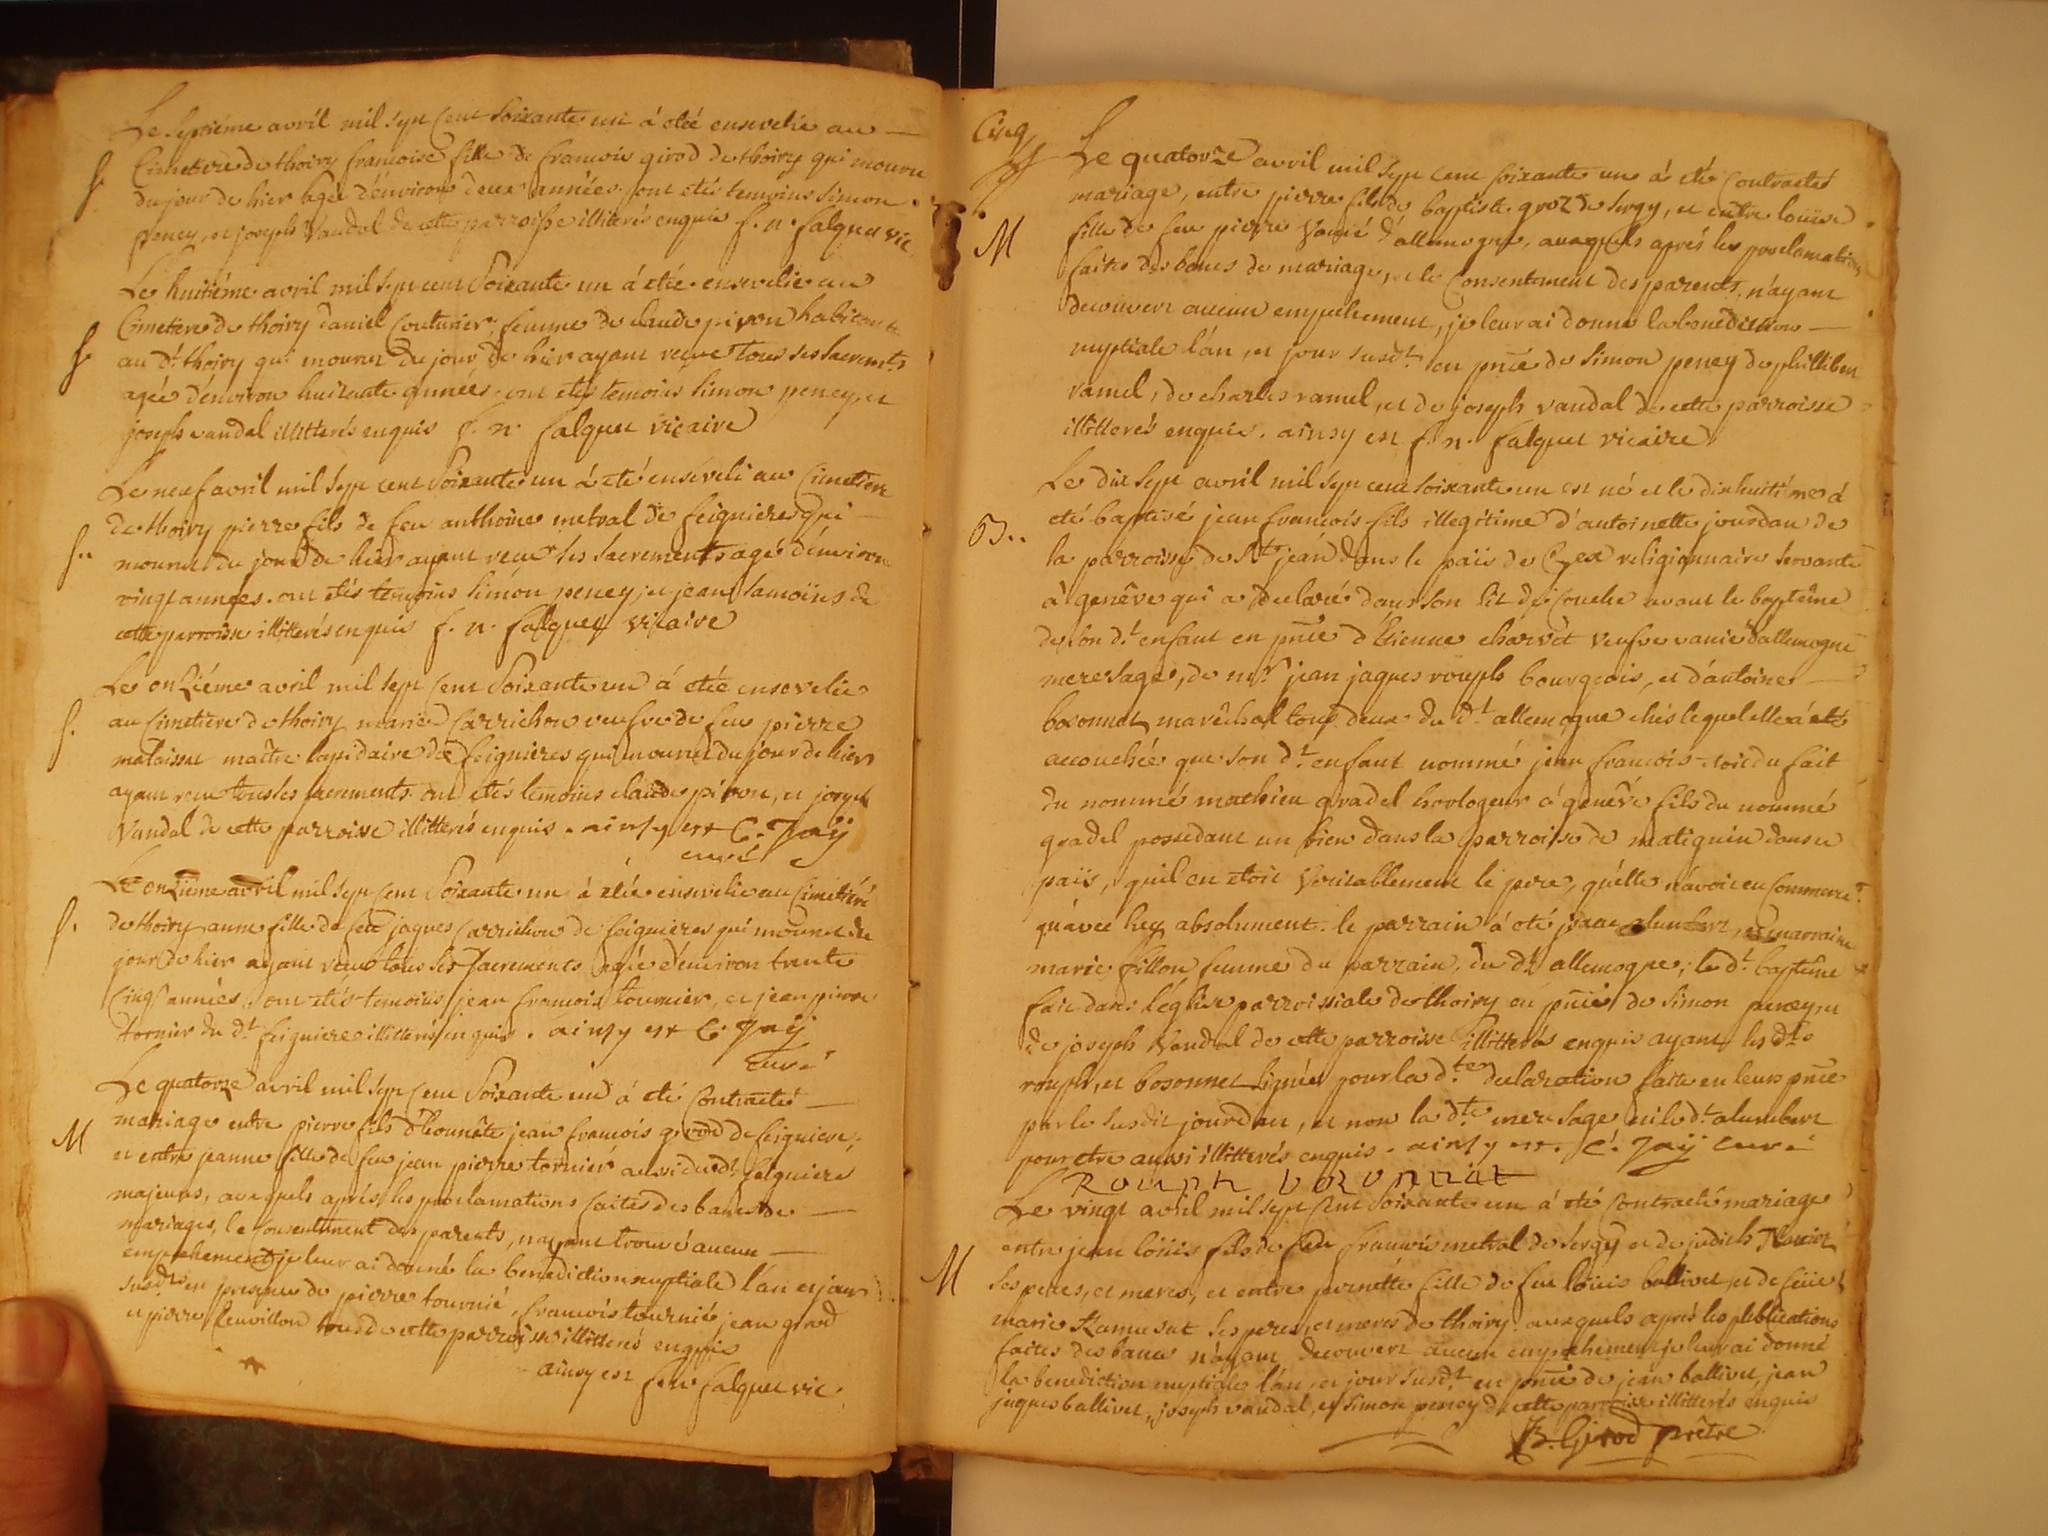 Le septiéme avril mil sept cent soixante un á etée ensevelie au
S. Cimetiere de thoiry francoise fille de francois girod de thoiry qui mourut
du jour de hier agée d'environ deux années. ont etés temoins simon
peney, et joseph Vandal de cette parroisse illiterés enquis f. n. falquet vic.
Le huitiéme avril mil sept cent Soixante un á etée ensevelie au
S. Cimetiere de thoiry daniel Couturier, femme de claude piron habitante
au dt. thoiry qui mourut du jour de hier ayant recue tous ses sacremts
agée d'environ huitante années. ont etés temoins simon peney, et
joseph vandal illitterés enquis f. n. falquet vicaire
Le neuf avril mil sept cent Soixante un á eté enséveli au Cimetiere
de thoiry pierre fils de feu anthoine metral de feignieres qui
S.. mourut du jour de hier ayant recu ses sacrements agé d'environ
vingt années. ont etés temoins simon peney, et jean samoüns de
cette parroisse illitterés enquis f. n. falquet vicaire
Le onziéme avril mil sept cent Soixante un á etée ensevelie
S. au Cimetiere de thoiry marie Carrichon veufve de feu pierre
mataissat maître lapidaire de feignieres qui mourut du jour de hier
ayant recu tous les sacrements. ont etés temoins claude piron, et joseph
Vandal de cette parroisse illitterés enquis. ainsy est C. Jaÿ
curé
Le onziéme avril mil sept cent Soixante un á etée ensevelie au Cimetiére
S. de thoiry anne fille de feu jaques Carrichon de feignieres qui mourut du
jour de hier ayant recue tous les sacrements agée d'environ trente
Cinq années. ont etés temoins jean francois tournier, et jean pierre
tornier du dt. feigniere illitterés enquis. ainsy est C. Jaÿ
Curé
Le quatorze avril mil sept cent Soixante un á eté Contracté
M mariage entre pierre fils d'honnête jean francois girod de feigniere,
et entre jeanne fille de feu jean pierre tornier aussi du dt. feigniere
majeurs, auxquels aprés les proclamations faites des bancs de
mariages, le consentement des parents, n'ayant trouvé aucun
empechement je leur ai donné la benediction nuptiale l'an et jour
susdt. en presence de pierre tournié, francois tournié, jean girod
et pierre tous de cette parroisse illitterés enquis
ainsy est f. n. falquet vic.
Cinq
Le quatorze avril mil sept cent soixante un á eté Contracté
mariage, entre pierre fils de baptiste groz de sergy, et entre loüise
M fille de feu pierre Vanié d'allemogne, auxquels aprés les proclamations
faites des bancs de mariage, et le Consentement des parents, n'ayant
decouvert aucun empechement, je leur ai donné la benediction
nuptiale l'an, et jour susdt. en pnce de simon peney de phillibert
ramel, de charles ramel, et de joseph vandal de cette parroisse
illitterés enquis. ainsy est f. n. falquet vicaire
Le dix sept avril mil sept cent soixante un est né et le dixhuitiéme á
eté baptisé jean francois fils illegitime d'antoinette jourdan de
B.. la parroisse de St. jean dans le païs de Gex religionnaire servante
à genêve qui a declaré dans son lit de couche avant le baptême
de son dt. enfant en pnce d'Etienne charvet veufve vanié d'allemogne
mere sage, de mr. jean jaques rouph bourgeois, et d'antoine
bosonnet maréchal tous deux du dt. allemogne chés lequel elle á eté
accouchée que son dt. enfant nommé jean francois etoit du fait
du nommé mathieu gradel horlogeur á genêve fils du nommé
gradel possedant un bien dans la parroisse de matignin dans ce
païs, qu'il en etoit veritablement le pere, qu'elle n'avoit eu Commerce
qu'avec luy absolument. le parrain á eté alumbert, et marraine
marie fillon femme du parrain, du dt. allemogne; le dt. baptême
fait dans l'église parroissiale de thoiry en pnce de simon peney, et
de joseph Vandal de cette parroisse illitterés enquis ayant les dts.
rouph, et bosonnet signés pour la dte. declaration faite en leurs pnce
par la susdit jourdan, et non la dte. mere sage, ni le dt. alumbert
pour etre aussi illitterés enquis. ainsy est. C. Jaÿ curé
Rouph bosonnet
Le vingt avril mil sept cent soixante un á eté Contracté mariage
entre jean loüis fils de feu francois metral de sergy et de judich
M ses peres, et meres, et entre pernette fille de feu loüis ballivet, et de feüe
marie Ramusat ses peres, et meres de thoiry. auxquels aprés les publications
faites des bancs n'ayant decouvert aucun empechement je leur ai donné
la benediction nuptiale l'an, et jour susdt. en pnce de jean ballivet, jean
jaques ballivet, joseph vandal, et simon peney de cette parroisse illitterés enquis
B. Girod prêtre